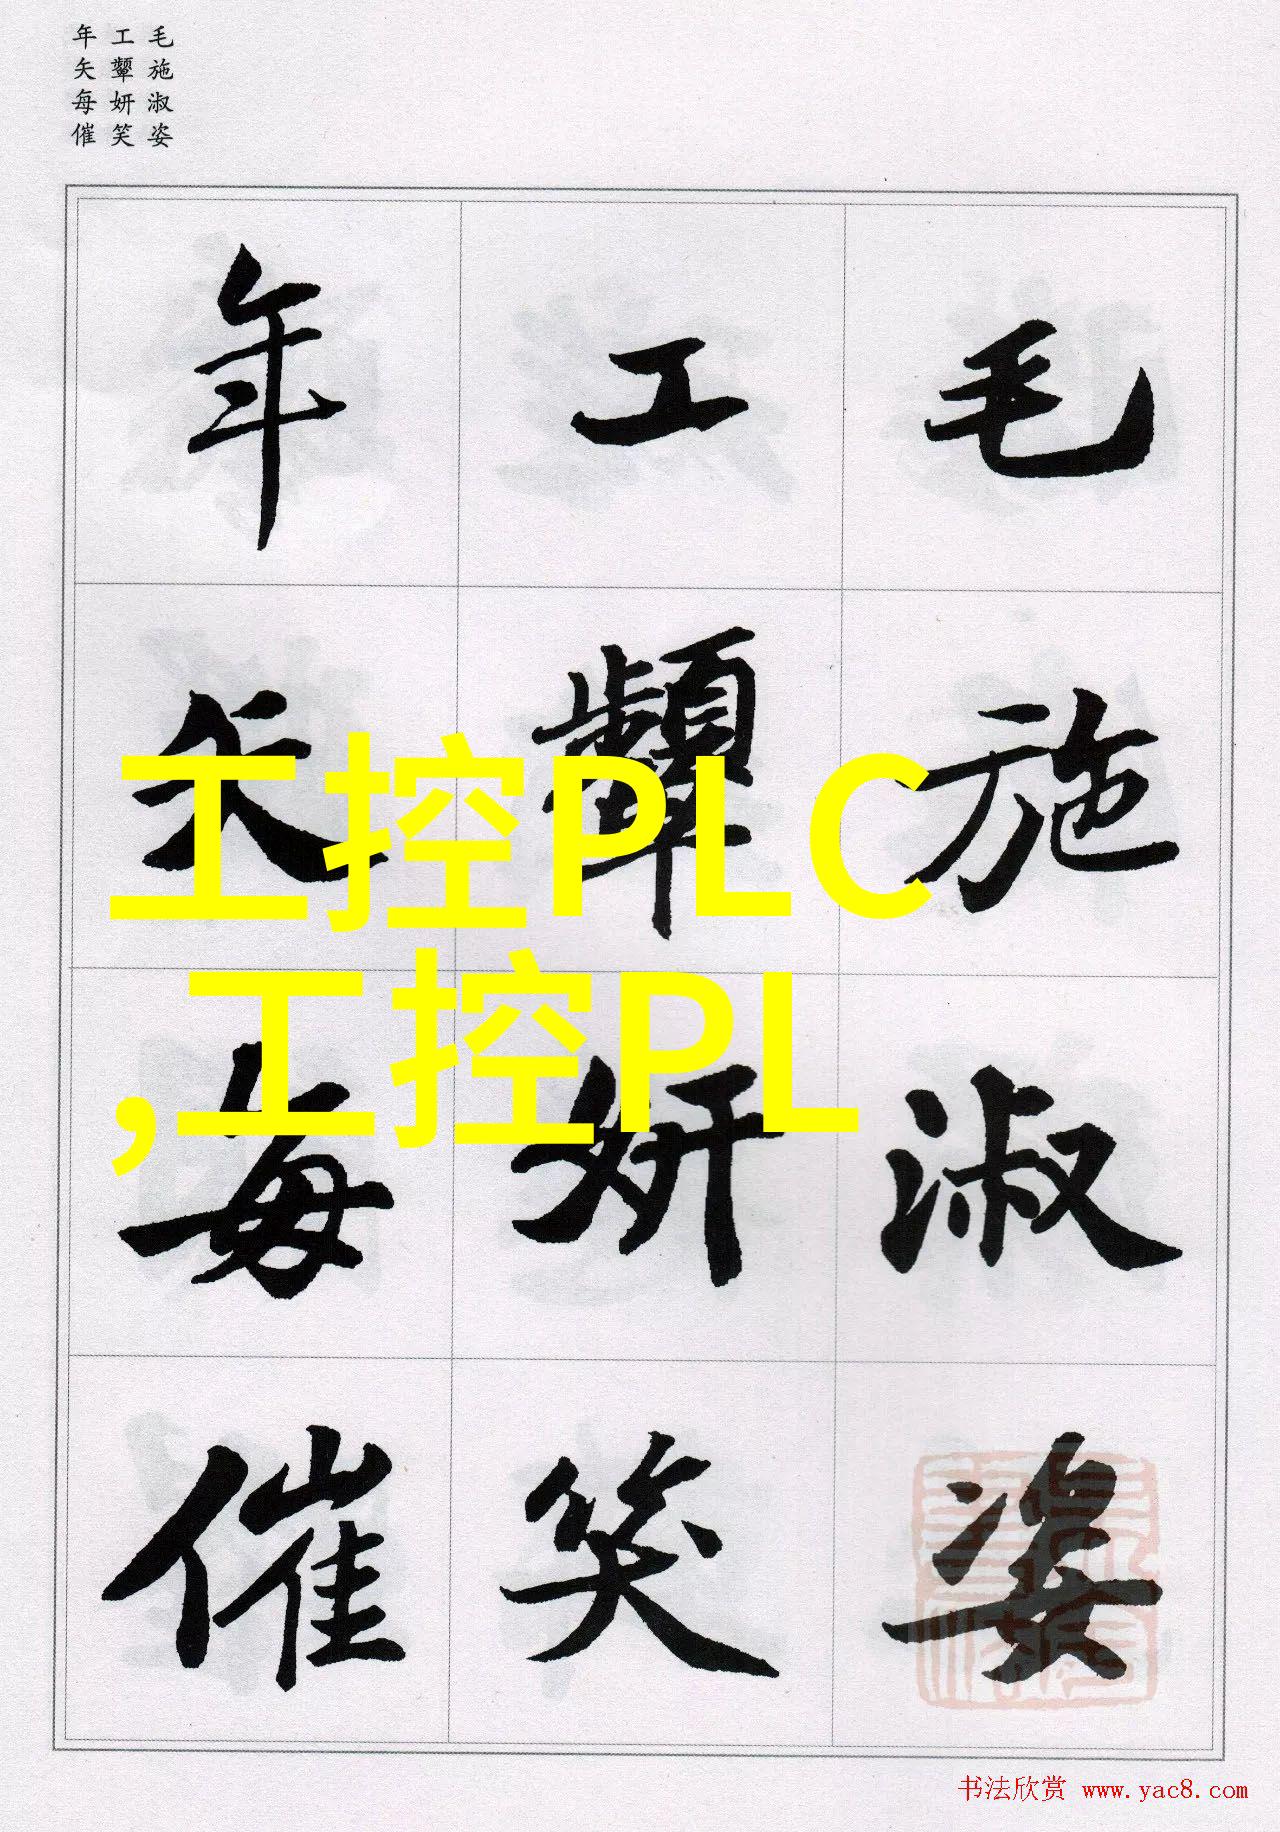 毛施淑姿
工顰妍笑
年矢每催
毛施淑姿
工顰妍笑
年矢每催
工控PLC
,工控PL
书法欣赏 www.yac8.com